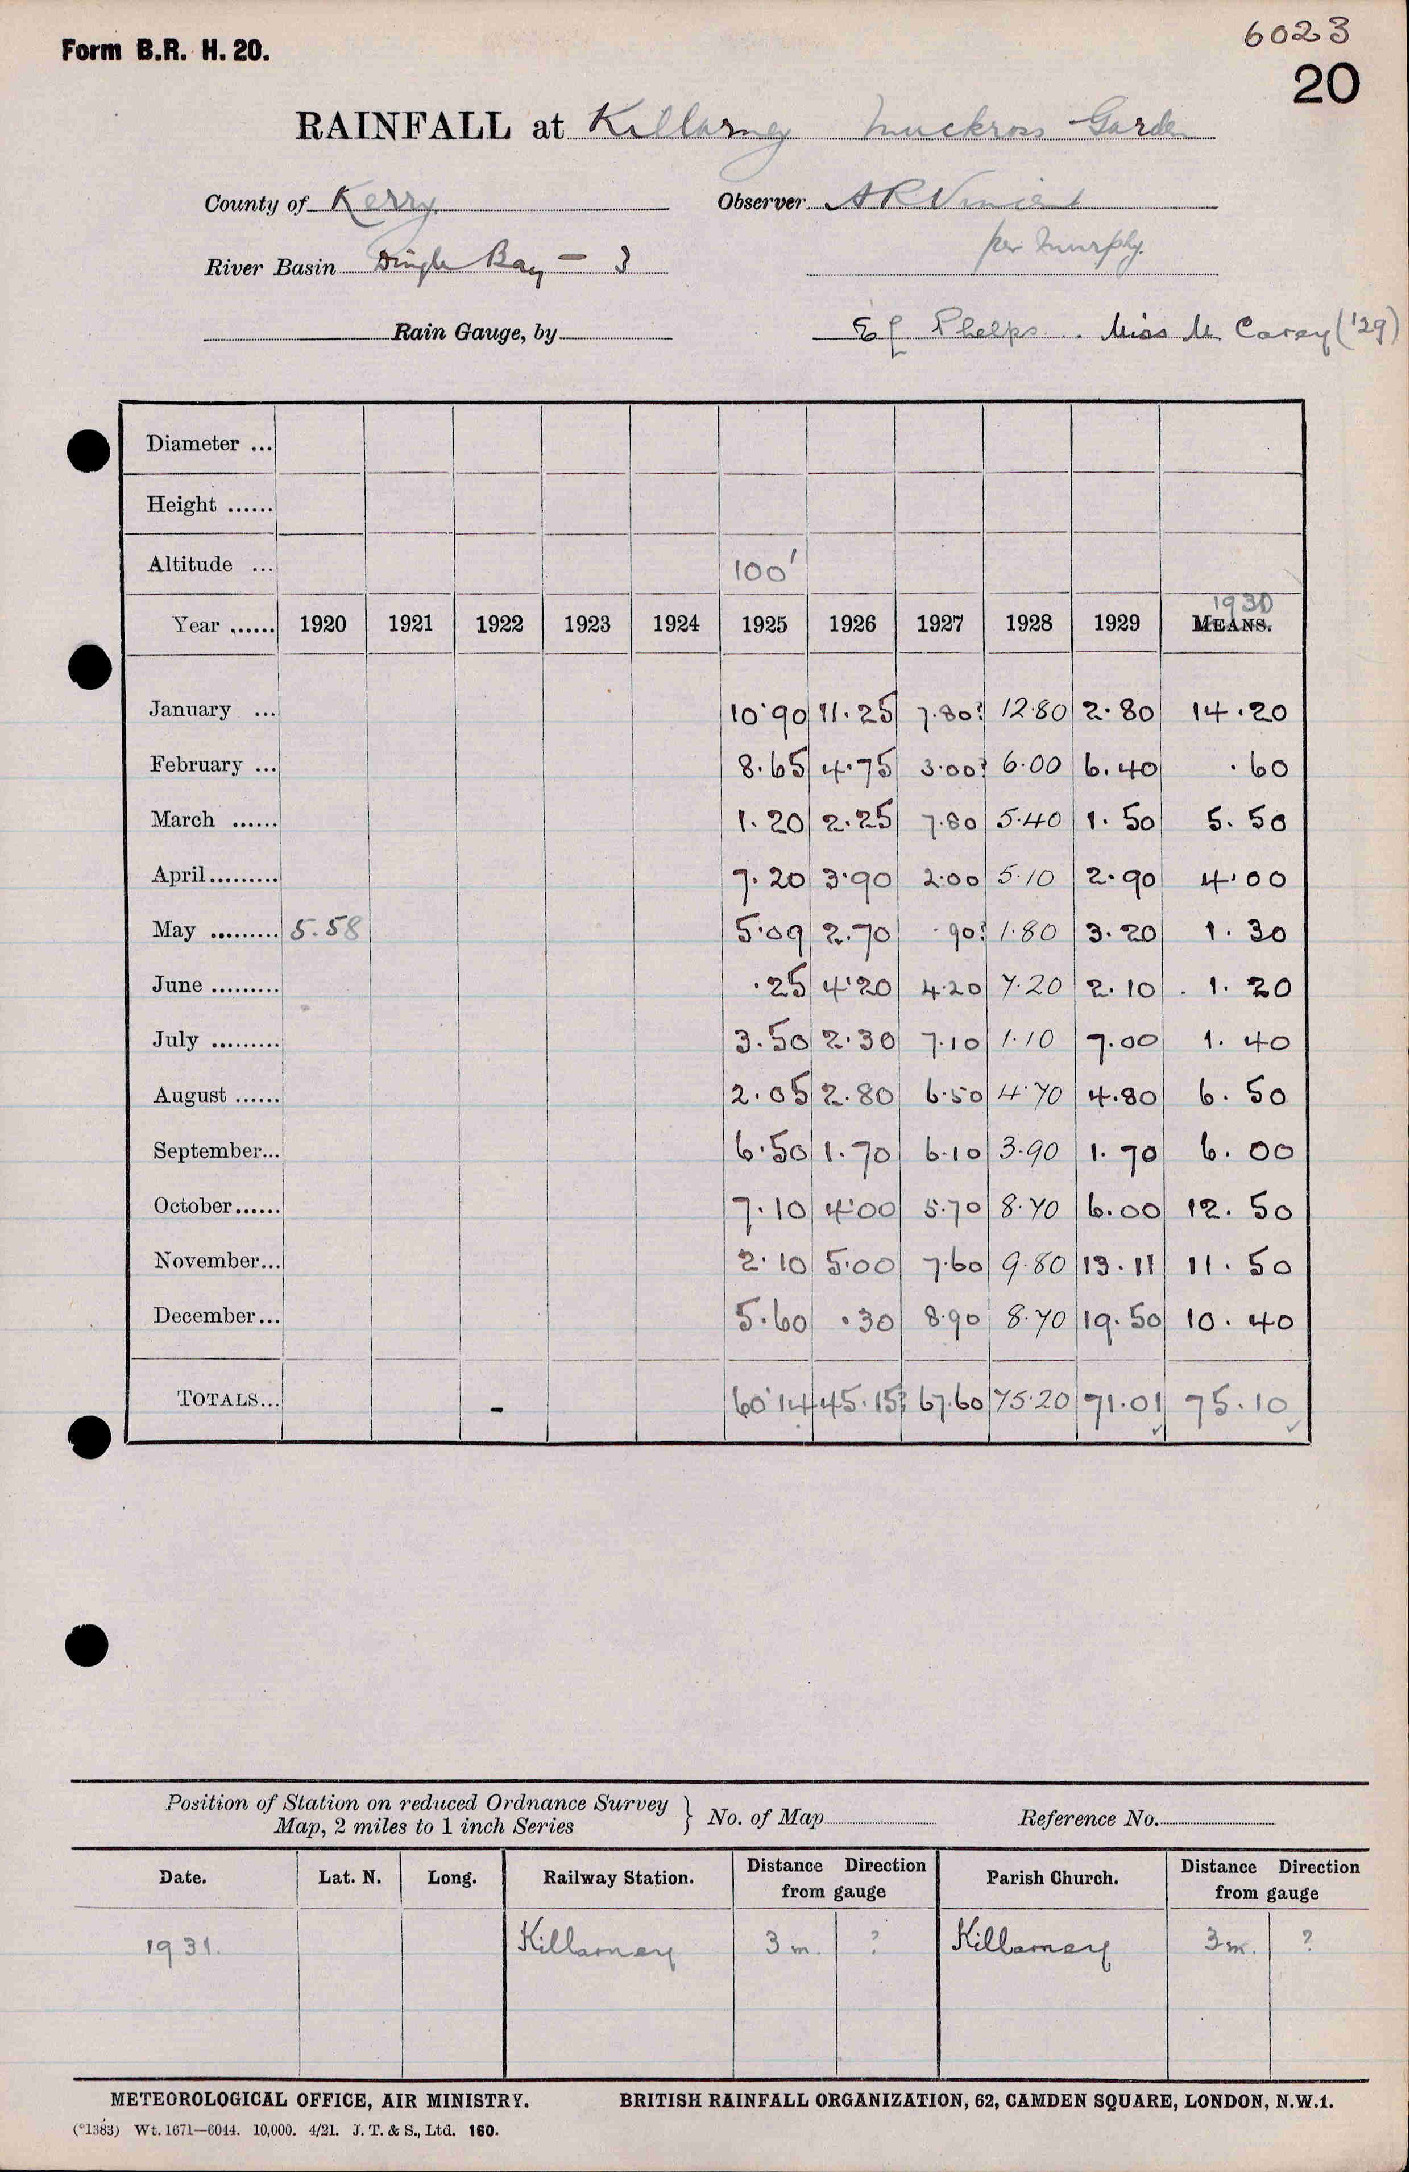 Form B.R. H. 20.
6023
20
RAINFALL at Killarney Muckross Garden
County of Kerry
Observer A R Vincent
per Murphy.
River Basin Dingle Bay — 3
Rain Gauge, by
Phelps . Miss M Carey ('29)
Diameter ...
Height ......
Altitude ... 100'
Year ...... 1920 1921 1922 1923 1924 1925 1926 1927 1928 1929 1930 MEANS.
January ... 10.90 11.25 7.80? 12.80 2.80 14.20
February ... 8.65 4.75 3.00? 6.00 6.40 .60
March ...... 1.20 2.25 7.80 5.40 1.50 5.50
April......... 7.20 3.90 2.00 5.10 2.90 4.00
May ......... 5.58 5.09 2.70 .90? 1.80 3.20 1.30
June ......... .25 4.20 4.20 7.20 2.10 1.20
July ......... 3.50 2.30 7.10 1.10 7.00 1.40
August ...... 2.05 2.80 6.50 4.70 4.80 6.50
September... 6.50 1.70 6.10 3.90 1.70 6.00
October...... 7.10 4.00 5.70 8.70 6.00 12.50
November... 2.10 5.00 7.60 9.80 13.11 11.50
December... 5.60 .30 8.90 8.70 19.50 10.40
TOTALS... - 60.14 45.15? 67.60 75.20 71.01 75.10
Position of Station on reduced Ordnance Survey
Map, 2 miles to 1 inch Series } No. of Map Reference No.
Date. Lat. N. Long. Railway Station. Distance Direction from gauge Parish Church. Distance Direction from gauge
1931. Killarney 3 m. ? Killarney 3 m. ?
METEOROLOGICAL OFFICE, AIR MINISTRY. BRITISH RAINFALL ORGANIZATION, 62, CAMDEN SQUARE, LONDON, N.W.1.
(*1383) Wt. 1671—6044. 10,000. 4/21. J. T. & S., Ltd. 160.